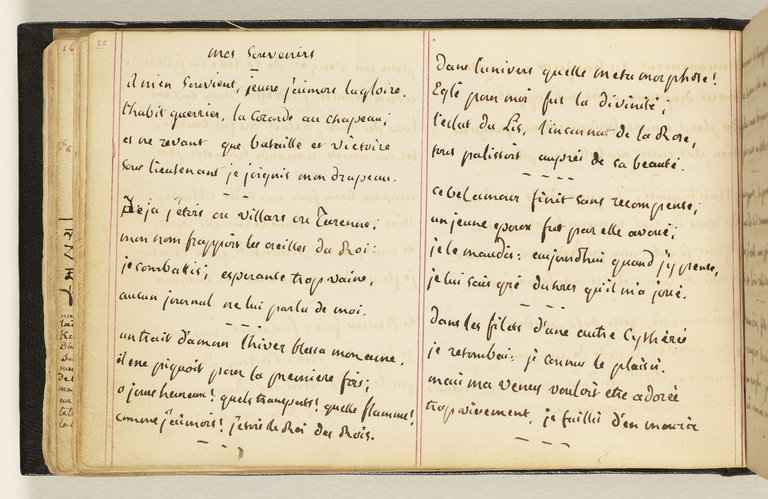 82
mes Souvenirs
il m'en Souvient, jeune j'aimois la gloire.
l'habit guerrier, la cocarde au chapeau;
et ne revant que bataille et victoire
Sous lieutenant je joignis mon drapeau.
Deja j'étois ou villars ou Turenne;
mon nom frappoit les oreilles du Roi:
je combatis; esperance trop vaine,
aucun journal ne lui parla de moi.
un trait d'amour l'hiver blessa mon ame,
il me piquoit pour la premiere fois;
o jours heureux! quels transports! quelle flamme!
comme j'aimois! j'etois le Roi des Rois.
Dans l'univers quelle metamorphose!
Eglé pour moi fut la divinité;
l'eclat du Lis, l'incarnat de la Rose,
tous palissoit auprès de sa beauté.
ce bel amour finit sans recompense;
un jeune epoux fut par elle avoué;
je le maudis: aujourdhui quand j'y pense,
je lui sais gré du tour qu'il m'a joué.
Dans les filets d'une autre Cythérée
je retombai: j'connus le plaisir.
mais ma venus vouloit etre adorée
trop vivement, je faillis d'en mourir